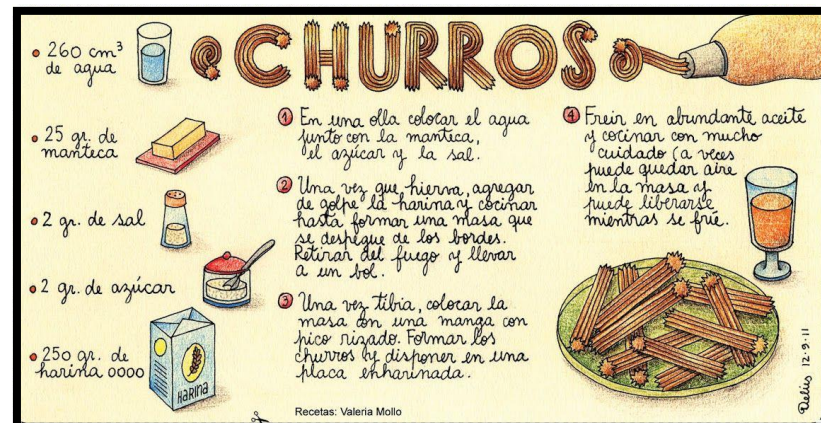 CHURROS
• 260 cm³
de agua
• 25 gr. de
manteca
• 2 gr. de sal
• 2 gr. de azúcar
• 250 gr. de
harina 0000
HARINA
① En una olla colocar el agua
junto con la manteca,
el azúcar y la sal.
② Una vez que hierva, agregar
de golpe la harina y cocinar
hasta formar una masa que
se despegue de los bordes.
Retirar del fuego y llevar
a un bol.
③ Una vez tibia, colocar la
masa con una manga con
pico rizado. Formar los
churros y disponer en una
placa enharinada.
④ Freir en abundante aceite
y cocinar con mucho
cuidado (a veces
puede quedar aire
en la masa y
puede liberarse
mientras se fríe.
Recetas: Valeria Mollo
Delis 12-9-11